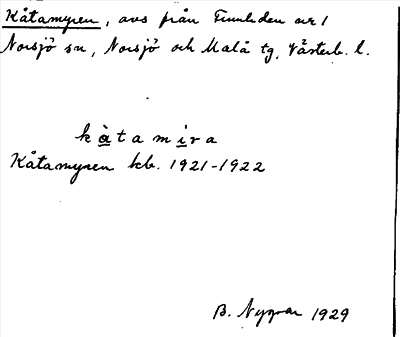 Kåtamyren, avs från Finnheden nr 1
Norsjö sn, Norsjö och Malå tg, Västerb. l.
kàtamira
Kåtamyren kb. 1921-1922
B. Nygren 1929